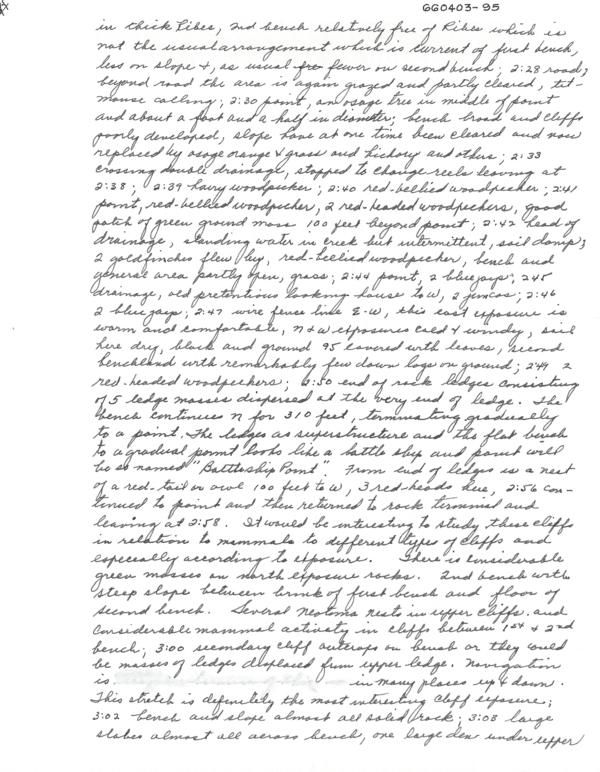 GG0403-95
in thick Ribes, 2nd bench relatively free of Ribes which is
not the usual arrangement which is current of first bench,
less on slope &, as usual free fewer on second bench; 2:28 road;
beyond road the area is again grazed and partly cleared, tit-
mouse calling; 2:30 point, an osage tree in middle of point
and about a foot and a half in diameter; bench broad and cliffs
poorly developed, slope have at one time been cleared and now
replaced by osage orange & grass and hickory and others; 2:33
crossing double drainage, stopped to change reels leaving at
2:38; 2:39 hairy woodpecker; 2:40 red-bellied woodpecker; 2:41
point, red-bellied woodpecher, 2 red-headed woodpeckers, good
patch of green ground moss 100 feet beyond point; 2:42 head of
drainage, standing water in creek but intermittent, soil damp;
2 goldfinches flew by, red-beelied woodpecker, bench and
general area partly open, grass; 2:44 point, 2 bluejays; 245
drainage, old pretentious looking house to W, 2 juncos; 2:46
2 bluejays; 2:47 wire fence line E-W, this east exposure is
warm and comfortable, n & W exposures cold & windy, soil
here dry, black and ground 95 covered with leaves, second
benchland with remarkably few down logs on ground; 2:49 2
red-headed woodpeckers; 2:50 end of rock ledges consisting
of 5 ledge masses dispersed at the very end of ledge. The
bench continues n for 310 feet, terminating gradually
to a point. The ledges as superstructure and the flat bench
to a gradual point looks like a battle ship and point will
be so named "Battleship Point". From end of ledges is a nest
of a red-tail or owl 100 feet to W, 3 red-heads here, 2:56 con-
tinued to point and then returned to rock terminal and
leaving at 2:58. It would be interesting to study these cliffs
in relation to mammals to different types of cliffs and
especially according to exposure. There is considerable
green mosses on north exposure rocks. 2nd bench with
steep slope between brink of first bench and floor of
second bench. Several Neotoma nests in upper cliffs and
considerable mammal activity in cliffs between 1st & 2nd
bench; 3:00 secondary cliff outcrops on bench or they could
be masses of ledges displaced from upper ledge. Navigation
is in many places up & down.
This stretch is definitely the most interesting cliff exposure;
3:02 bench and slope almost all solid rock; 3:03 large
slabes almost all across bench, one large den under upper